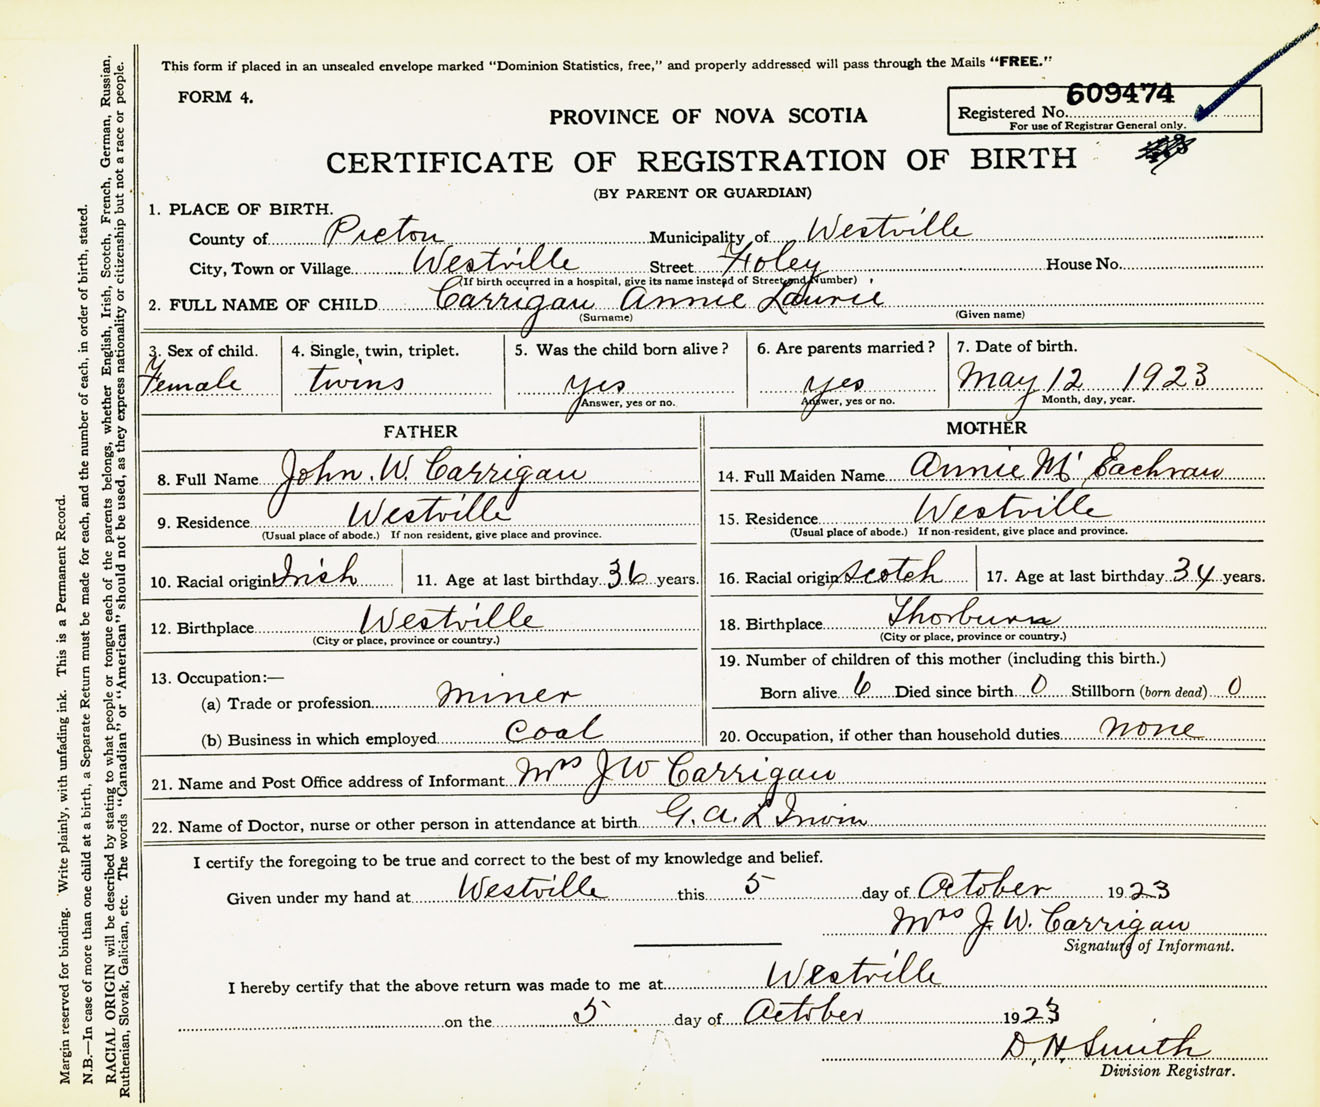 This form if placed in an unsealed envelope marked "Dominion Statistics, free," and properly addressed will pass through the Mails "FREE."
FORM 4.
PROVINCE OF NOVA SCOTIA
Registered No. 609474
For use of Registrar General only.
CERTIFICATE OF REGISTRATION OF BIRTH
(BY PARENT OR GUARDIAN)
1. PLACE OF BIRTH.
County of Pictou Municipality of Westville
City, Town or Village Westville Street Foley House No.
(If birth occurred in a hospital, give its name instead of Street and Number)
2. FULL NAME OF CHILD Carrigan Annie Laurie
(Surname) (Given name)
3. Sex of child. 4. Single, twin, triplet. 5. Was the child born alive? 6. Are parents married? 7. Date of birth.
Female twins yes yes May 12 1923
Answer, yes or no. Answer, yes or no. Month, day, year.
FATHER MOTHER
8. Full Name John. W. Carrigan 14. Full Maiden Name Annie Mc Eachran
9. Residence Westville 15. Residence Westville
(Usual place of abode.) If non resident, give place and province. (Usual place of abode.) If non-resident, give place and province.
10. Racial origin Irish 11. Age at last birthday 36 years. 16. Racial origin Scotch 17. Age at last birthday 34 years.
12. Birthplace Westville 18. Birthplace Thorburn
(City or place, province or country.) (City or place, province or country.)
19. Number of children of this mother (including this birth.)
13. Occupation:—
Born alive 6 Died since birth 0 Stillborn (born dead) 0
(a) Trade or profession miner
(b) Business in which employed Coal 20. Occupation, if other than household duties none
21. Name and Post Office address of Informant Mrs J W Carrigan
22. Name of Doctor, nurse or other person in attendance at birth G. A. L Irwin
I certify the foregoing to be true and correct to the best of my knowledge and belief.
Given under my hand at Westville this 5 day of October 1923
Mrs J. W. Carrigan
Signature of Informant.
I hereby certify that the above return was made to me at Westville
on the 5 day of October 1923
D. H. Smith
Division Registrar.
Margin reserved for binding. Write plainly, with unfading ink. This is a Permanent Record.
N.B.—In case of more than one child at a birth, a Separate Return must be made for each, and the number of each, in order of birth, stated.
RACIAL ORIGIN will be described by stating to what people or tongue each of the parents belongs, whether English, Irish, Scotch, French, German, Russian,
Ruthenian, Slovak, Galician, etc. The words "Canadian" or "American" should not be used, as they express nationality or citizenship but not a race or people.